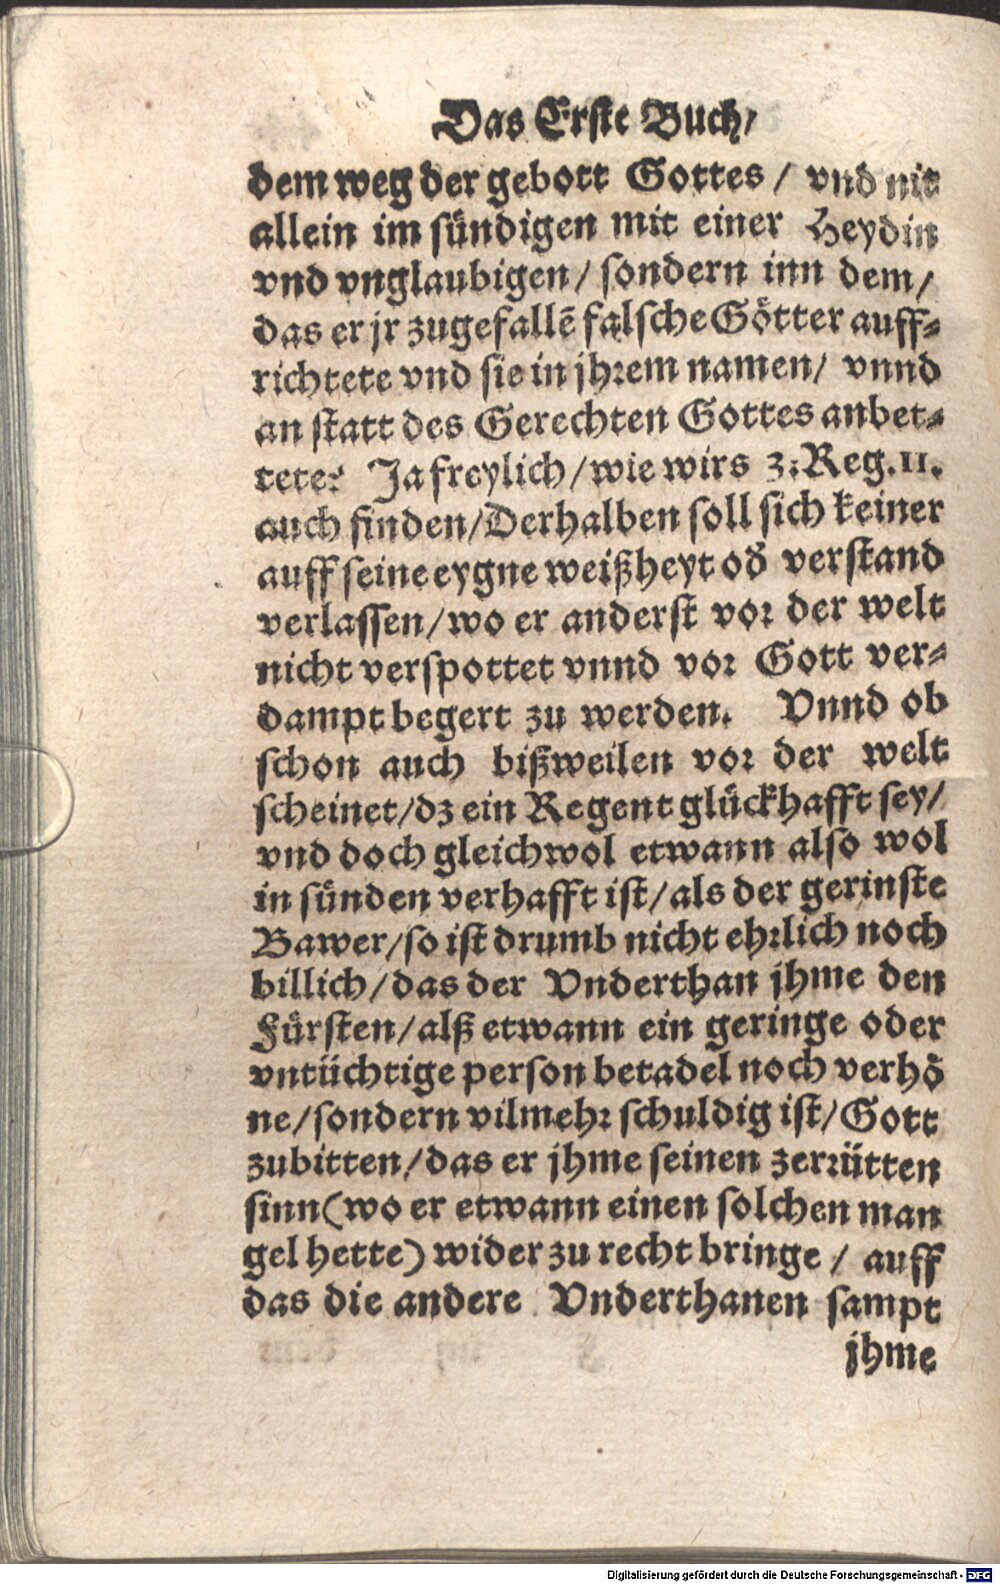 Das Erste Buch/
dem weg der gebott Gottes / vnd nit
allein im sündigen mit einer Heydin
vnd vnglaubigen/ sondern inn dem/
das er jr zugefallē falsche Götter auff-
richtete vnd sie in jhrem namen/ vnnd
an statt des Gerechten Gottes anbet-
tete? Ja freylich/ wie wirs 3. Reg. 11.
auch finden/ Derhalben soll sich keiner
auff seine eygne weißheyt od̕ verstand
verlassen/ wo er anderst vor der welt
nicht verspottet vnnd vor Gott ver-
dampt begert zu werden. Vnnd ob
schon auch bißweilen vor der welt
scheinet/ dz ein Regent glückhafft sey/
vnd doch gleichwol etwann also wol
in sünden verhafft ist/ als der gerinste
Bawer/ so ist drumb nicht ehrlich noch
billich/ das der Vnderthan jhme den
Fürsten/ alß etwann ein geringe oder
vntüchtige person betadel noch verhö
ne/ sondern vilmehr schuldig ist/ Gott
zubitten/ das er jhme seinen zerrütten
sinn (wo er etwann einen solchen man
gel hette) wider zu recht bringe / auff
das die andere Vnderthanen sampt
jhme
Digitalisierung gefördert durch die Deutsche Forschungsgemeinschaft - DFG